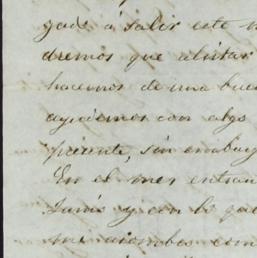 gado á salir este
dremos que alistar
hacernos de una bue
ayudemos con algo
pariente, sin embarg
En el mes entran
Junio y con lo que
me arrombes com